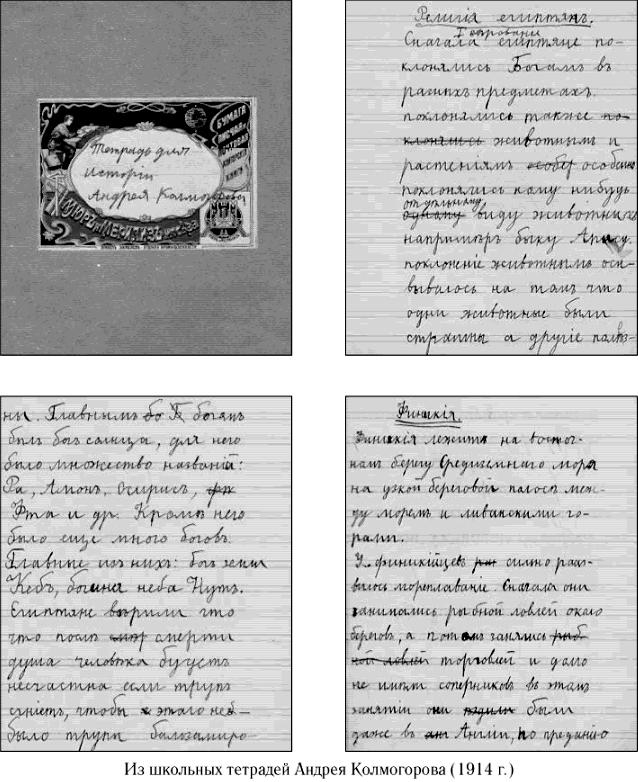 БУМАГА
ПИСЧАЯ и
ПОЧТОВАЯ
КНИГИ
Тетрадь для
Исторіи
Андрея Колмогорова
МЮРЪ и МЕРИЛИЗЪ
Религія египтянъ.
Сначала египтяне по-
клонялись Богамъ въ
разныхъ предметахъ.
поклонялись также по-
клонялись животнымъ и
растеніямъ особ особенно
поклонялись каму нибудь
отдѣльному
одному виду животныхъ
напримѣръ быку Апису.
поклоненіе животнымъ осн-
вывалось на томъ что
одни животные были
страшны а другіе полез-
ны. Главнымъ бо Б богамъ
былъ богъ солнца, для него
было множество названій:
Ра, Амонъ, Осирисъ,
Фта и др. Кромѣ него
было еще много боговъ.
Главные изъ нихъ: богъ земли
Кебъ, богиня неба Нутъ.
Египтяне вѣрили что
что послѣ смерти
душа человѣка будетъ
несчастна если трупъ
сгніетъ, чтобы этаго неб-
было трупы бальзамиро-
Финикія.
Финикія лежитъ на восточ-
номъ берегу Средиземнаго моря
на узкой береговой полосѣ меж-
ду моремъ и ливанскими го-
рами.
У финикійцевъ сильно раз-
вилось мореплаваніе. Сначала они
занимались рыбной ловлей около
береговъ, а потомъ занялись рыб-
ной ловлей торговлей и долго
не имѣли соперниковъ въ этомъ
занятіи они ѣздили были
даже въ анг Англіи, по преданію
Из школьных тетрадей Андрея Колмогорова (1914 г.)